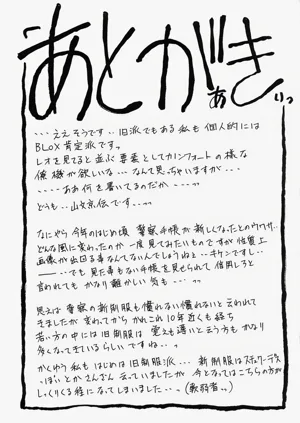 あとがきぁぃっ
・・・ええそうです・・旧派でもある私も個人的には
BLOX肯定派ですっ
レオを見てると並ぶ要素としてカノンフォートの様な
僚機が欲しいな・・・なんて思っちゃいますが・・・
・・・・ああ何を書いてるのだか・・・・っっ
どうも・・山文京伝です・・・・っ
なにやら今年のはじめ頃 警察手帳が新しくなったとのウワサ・・
どんな風に変わったのか一度見てみたいものですが性質上
画像が出回る事なんてないんでしょうねぇ・・キケンですし・・
――・・・でも見た事もない手帳を見せられて信用しろと
言われてもかなり難かしい気も・・・・っ
思えば警察の新制服も慣れない慣れないと言われて
きましたが変わってからかれこれ10年近くも経ち
若い方の中には旧制服は
多くなってきているらしいですね・・っ
かくゆう私もはじめは旧制服派・・・新制服は
っぽいとかさんざん云っていましたが今となってはこちらの方が
しっくりくる程になってしまいました・・っ(軟弱者っっ)